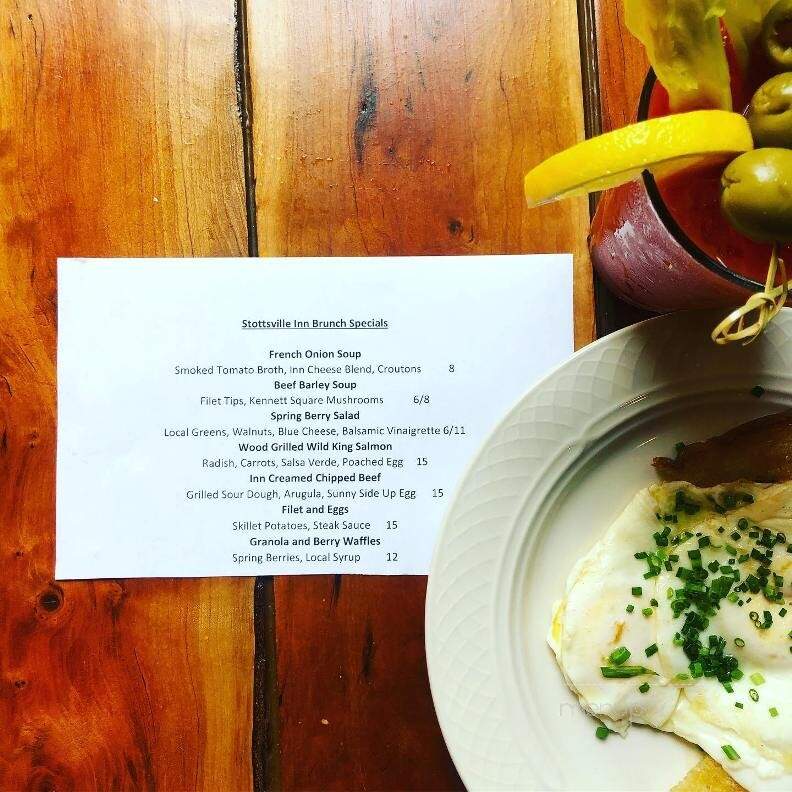 Stottsville Inn Brunch Specials
French Onion Soup
Smoked Tomato Broth, Inn Cheese Blend, Croutons 8
Beef Barley Soup
Filet Tips, Kennett Square Mushrooms 6/8
Spring Berry Salad
Local Greens, Walnuts, Blue Cheese, Balsamic Vinaigrette 6/11
Wood Grilled Wild King Salmon
Radish, Carrots, Salsa Verde, Poached Egg 15
Inn Creamed Chipped Beef
Grilled Sour Dough, Arugula, Sunny Side Up Egg 15
Filet and Eggs
Skillet Potatoes, Steak Sauce 15
Granola and Berry Waffles
Spring Berries, Local Syrup 12